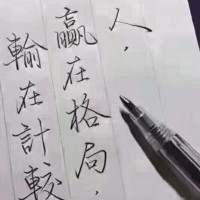 人，
赢在格局，
輸在計較